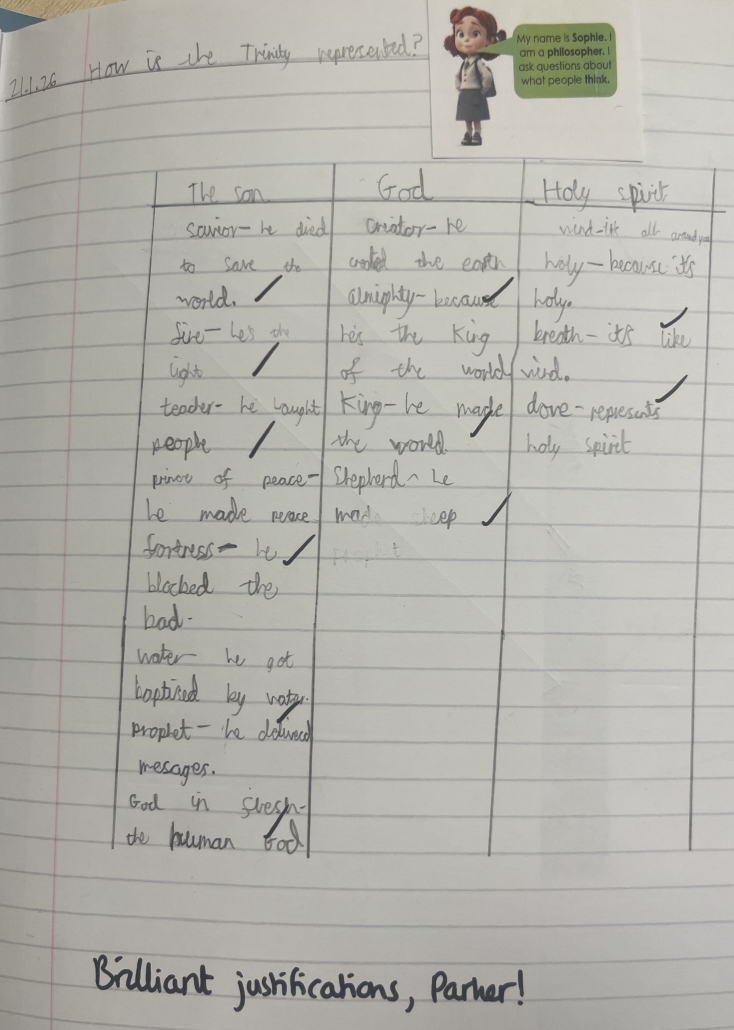 21.1.26 How is the Trinity represented?
My name is Sophie. I
am a philosopher. I
ask questions about
what people think.
The son
savior - he died
to save the
world.
fire - he's the
light
teacher - he taught
people
prince of peace -
he made peace
fortress - he
blocked the
bad.
water - he got
baptised by water.
prophet - he delivered
mesages.
God in flesh -
the human God
God
creator - he
created the earth
almighty - because
he's the King
of the world
King - he made
the world.
Shepherd - he
made sheep
prophet
Holy spirit
wind - its all around you
holy - because it's
holy.
breath - it's like
wind.
dove - represents
holy spirit
Brilliant justifications, Parker!